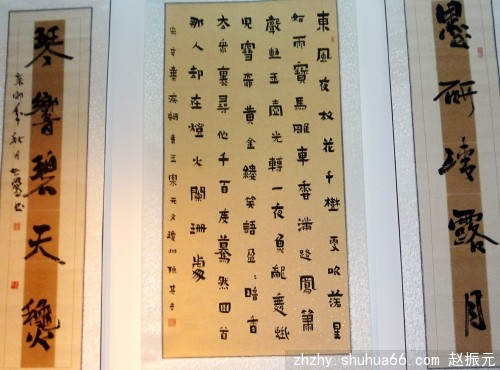 墨研清露月
東風夜放花千樹更吹落星
如雨寶馬雕車香滿路鳳簫
聲動玉壺光轉一夜魚龍舞蛾
兒雪柳黃金縷笑語盈盈暗香
去衆裏尋他千百度驀然回首
那人却在燈火闌珊處
辛棄疾詞青玉案元夕
琴響碧天
年秋月
zhzhy.shuhua66.com 赵振元